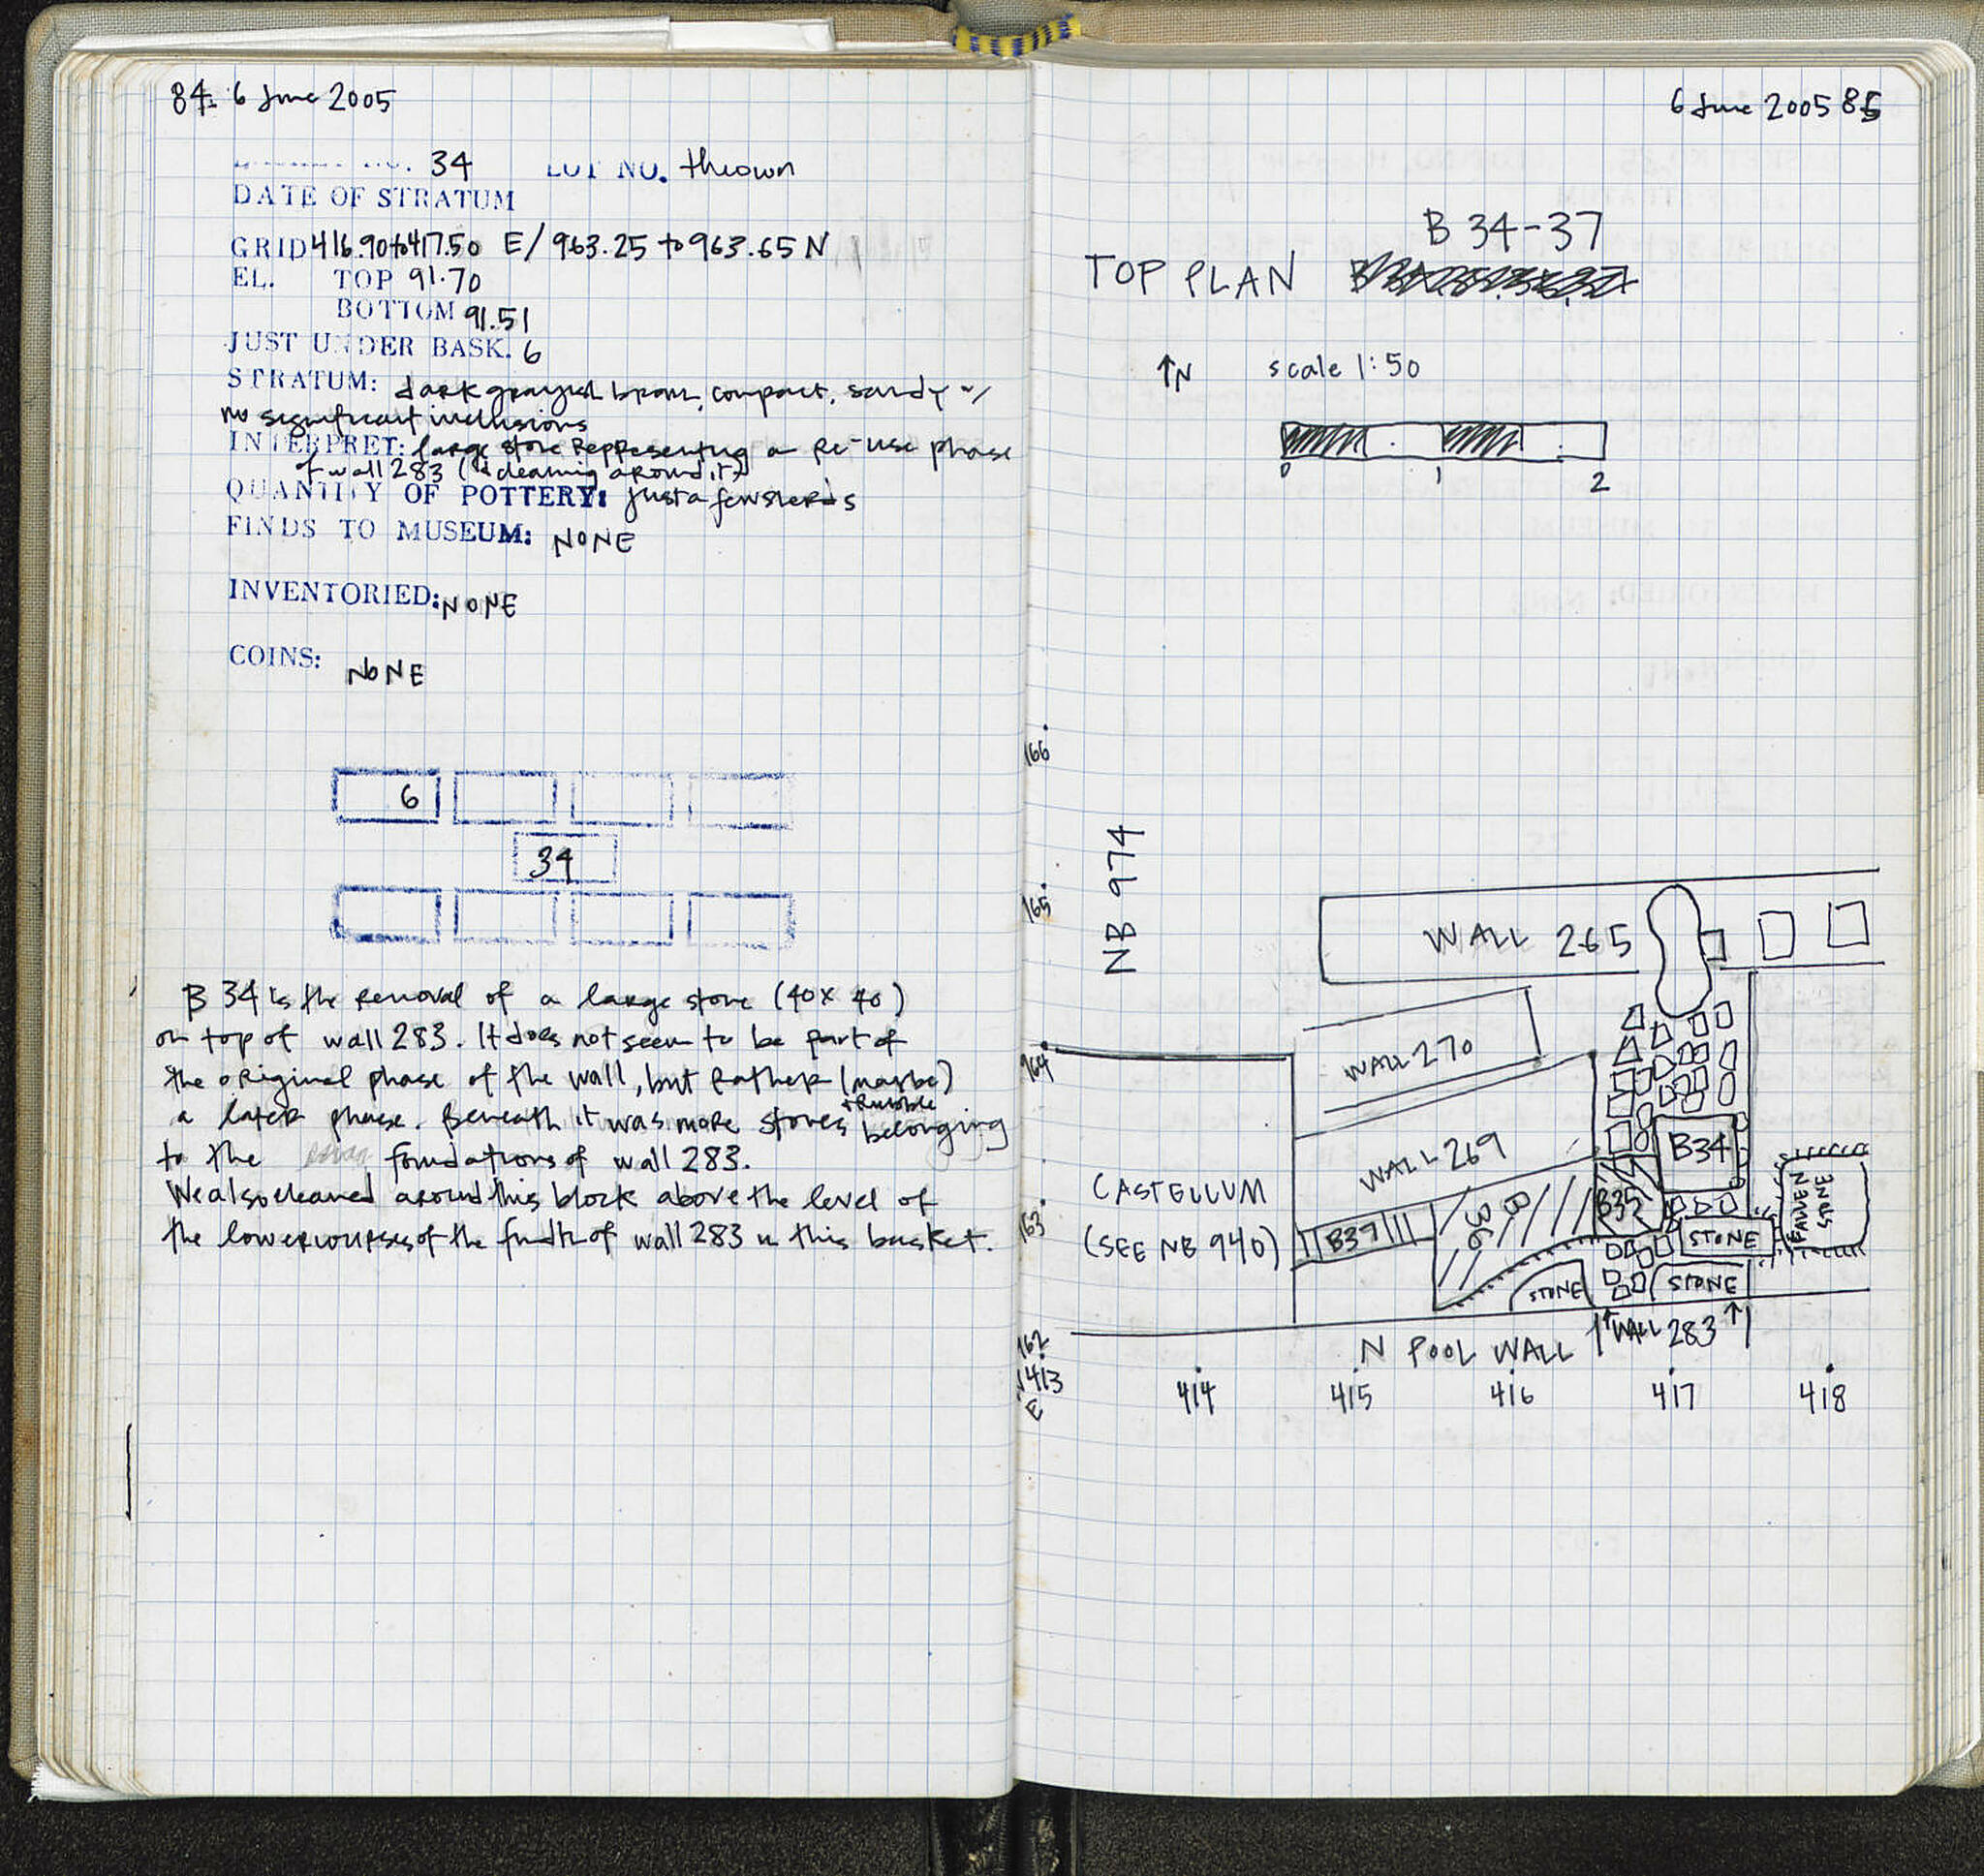 84. 6 June 2005
34 LOT NO. thrown
DATE OF STRATUM
GRID 416.90 to 417.50 E/ 963.25 to 963.65 N
EL. TOP 91.70
BOTTOM 91.51
JUST UNDER BASK. 6
STRATUM: dark grayish brown, compact, sandy w/
no significant inclusions
INTERPRET: large stone representing a re-use phase
of wall 283 (& cleaning around it)
QUANTITY OF POTTERY: just a few sherds
FINDS TO MUSEUM: NONE
INVENTORIED: NONE
COINS: NONE
6
34
B 34 is the removal of a large stone (40 x 40)
on top of wall 283. It does not seem to be part of
the original phase of the wall, but rather (maybe)
a later phase. Beneath it was more stones + rubble belonging
to the foundations of wall 283.
We also cleaned around this block above the level of
the lower courses of the fndtn of wall 283 in this basket.
6 June 2005 85
B 34-37
TOP PLAN
↑N scale 1:50
0 1 2
166
165
164
163
162
NB 974
WALL 265
WALL 270
WALL 269
B34
B35
B36
B37
CASTELLUM
(SEE NB 940)
FALLEN
STONE
STONE
STONE
STONE
N POOL WALL
WALL 283
413
E
414 415 416 417 418